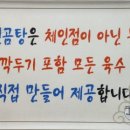 곰탕은 체인점이 아닌
깍두기 포함 모든 육수
직접 만들어 제공합니다